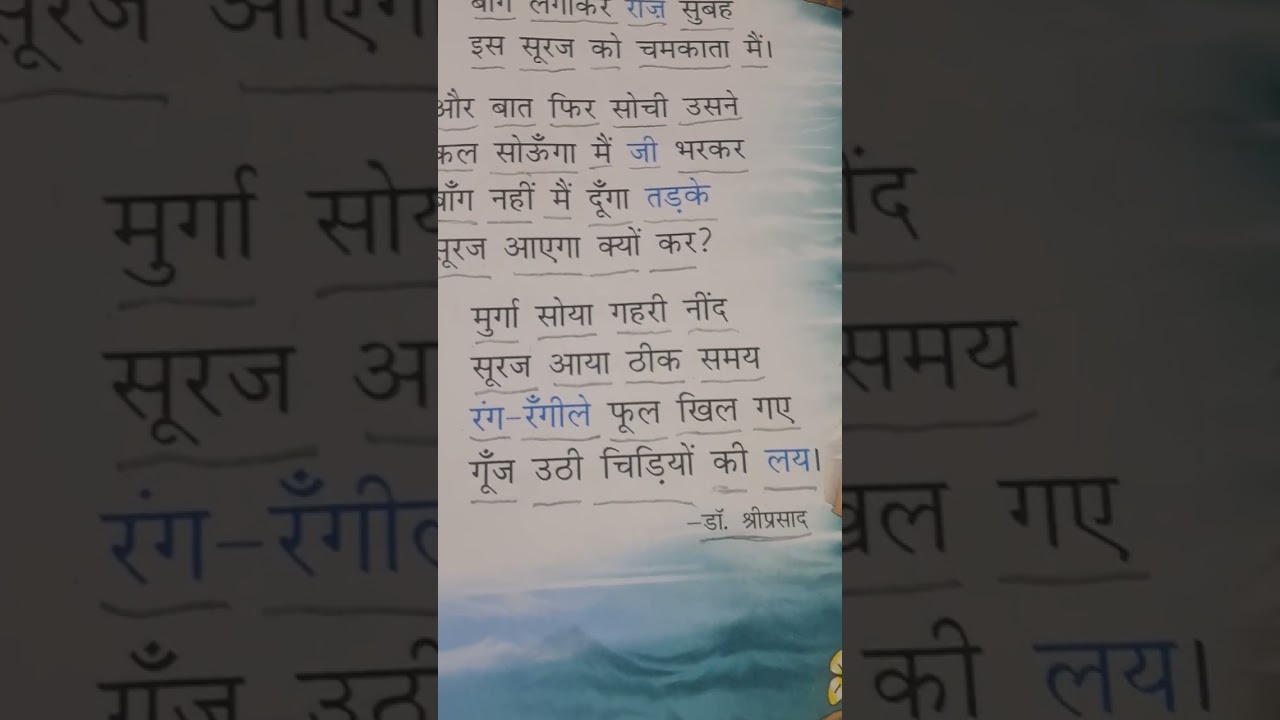 बाँग लगाकर रोज़ सुबह
इस सूरज को चमकाता मैं।
और बात फिर सोची उसने
कल सोऊँगा मैं जी भरकर
बाँग नहीं मैं दूँगा तड़के
सूरज आएगा क्यों कर?
मुर्गा सोया गहरी नींद
सूरज आया ठीक समय
रंग-रँगीले फूल खिल गए
गूँज उठी चिड़ियों की लय।
-डॉ. श्रीप्रसाद